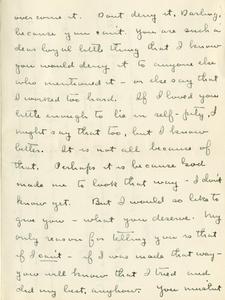 overcome it. Don't deny it, Darling,
because you can't. You are such a
dear loyal little thing that I know
you would deny it to anyone else
who mentioned it – or else say that
I worked too hard. If I loved you
little enough to lie in self-pity, I
might say that too, but I know
better. It is not all because of
that. Perhaps it is because God
made me to look that way – I don't
know yet. But I would so like to
give you – what you deserve. My
only reason for telling you is that
if I can't – if I was made that way –
you will know that I tried and
did my best, anyhow. You mustn't